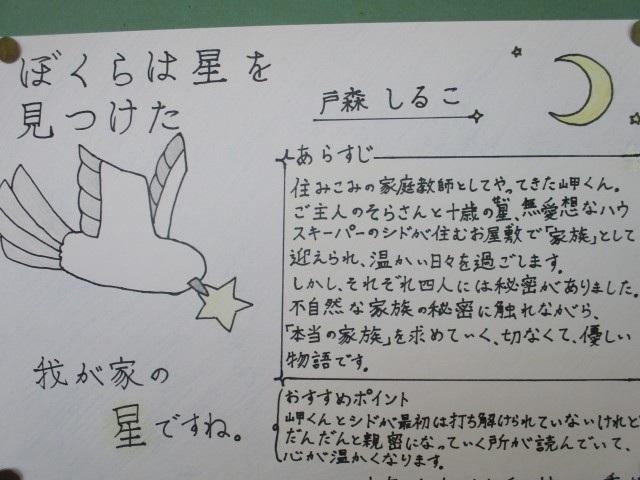 ぼくらは星を
見つけた
戸森 しるこ
あらすじ
住みこみの家庭教師としてやってきた岬くん。
ご主人のそらさんと十歳の星、無愛想なハウ
スキーパーのシドが住むお屋敷で「家族」として
迎えられ、温かい日々を過ごします。
しかし、それぞれ四人には秘密がありました。
不自然な家族の秘密に触れながら、
「本当の家族」を求めていく、切なくて、優しい
物語です。
我が家の
星ですね。
おすすめポイント
岬くんとシドが最初は打ち解けられていないけれど
だんだんと親密になっていく所が読んでいて、
心が温かくなります。